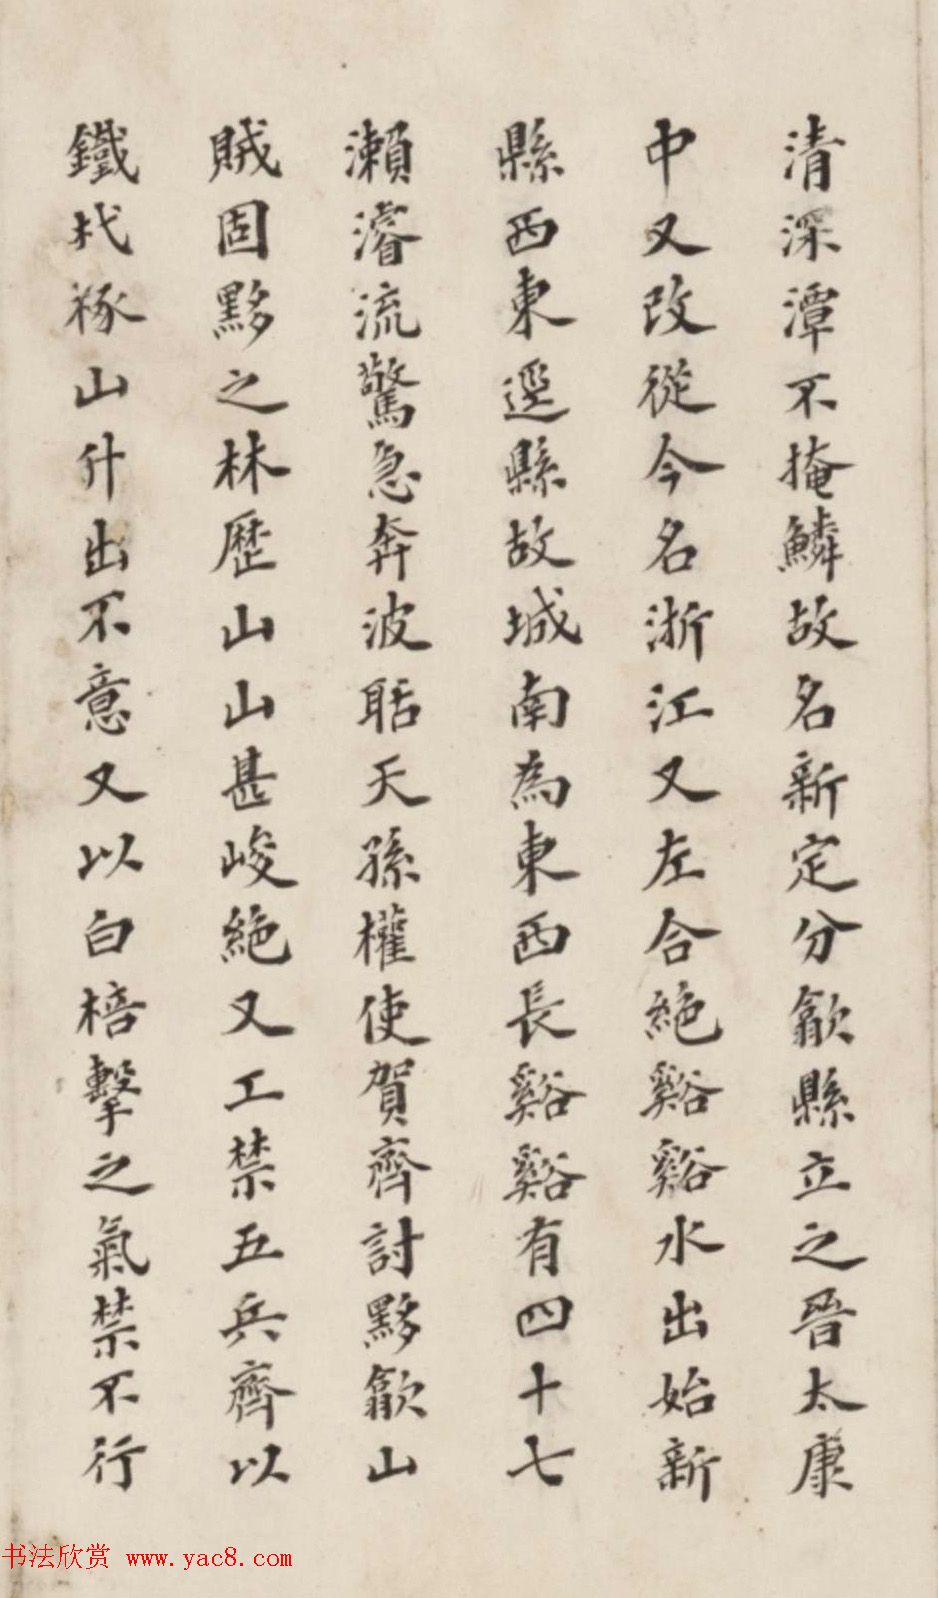 清深潭不掩鱗故名新定分歙縣立之晉太康
中又改從今名浙江又左合絶谿谿水出始新
縣西東逕縣故城南為東西長谿谿有四十七
瀨濬流驚急奔波聒天孫權使賀齊討黟歙山
賊固黟之林歷山山甚峻絶又工禁五兵齊以
鐵杙椓山升出不意又以白棓擊之氣禁不行
书法欣赏 www.yac8.com